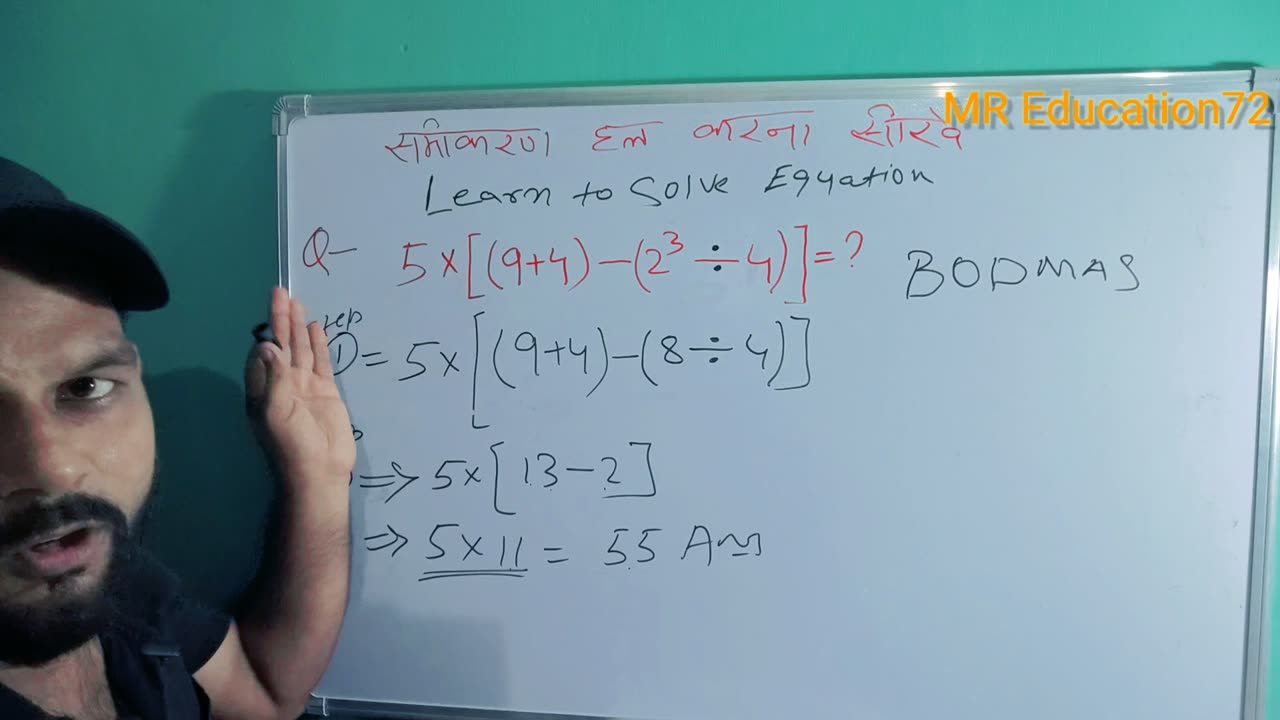 MR Education72
समीकरण हल करना सीखे
Learn to Solve Equation
Q- 5×[(9+4)-(2³÷4)]=? BODMAS
① = 5×[(9+4)-(8÷4)]
⇒ 5×[13-2]
⇒ 5×11 = 55 Ans